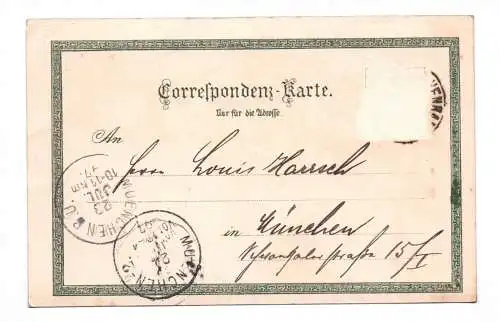 Correspondenz-Karte.
Nur für die Adresse
An
Herrn Louis Haersch
in München
Schwanthalerstraße 15/I
MUENCHEN B.O.
23
JUL
MUENCHEN